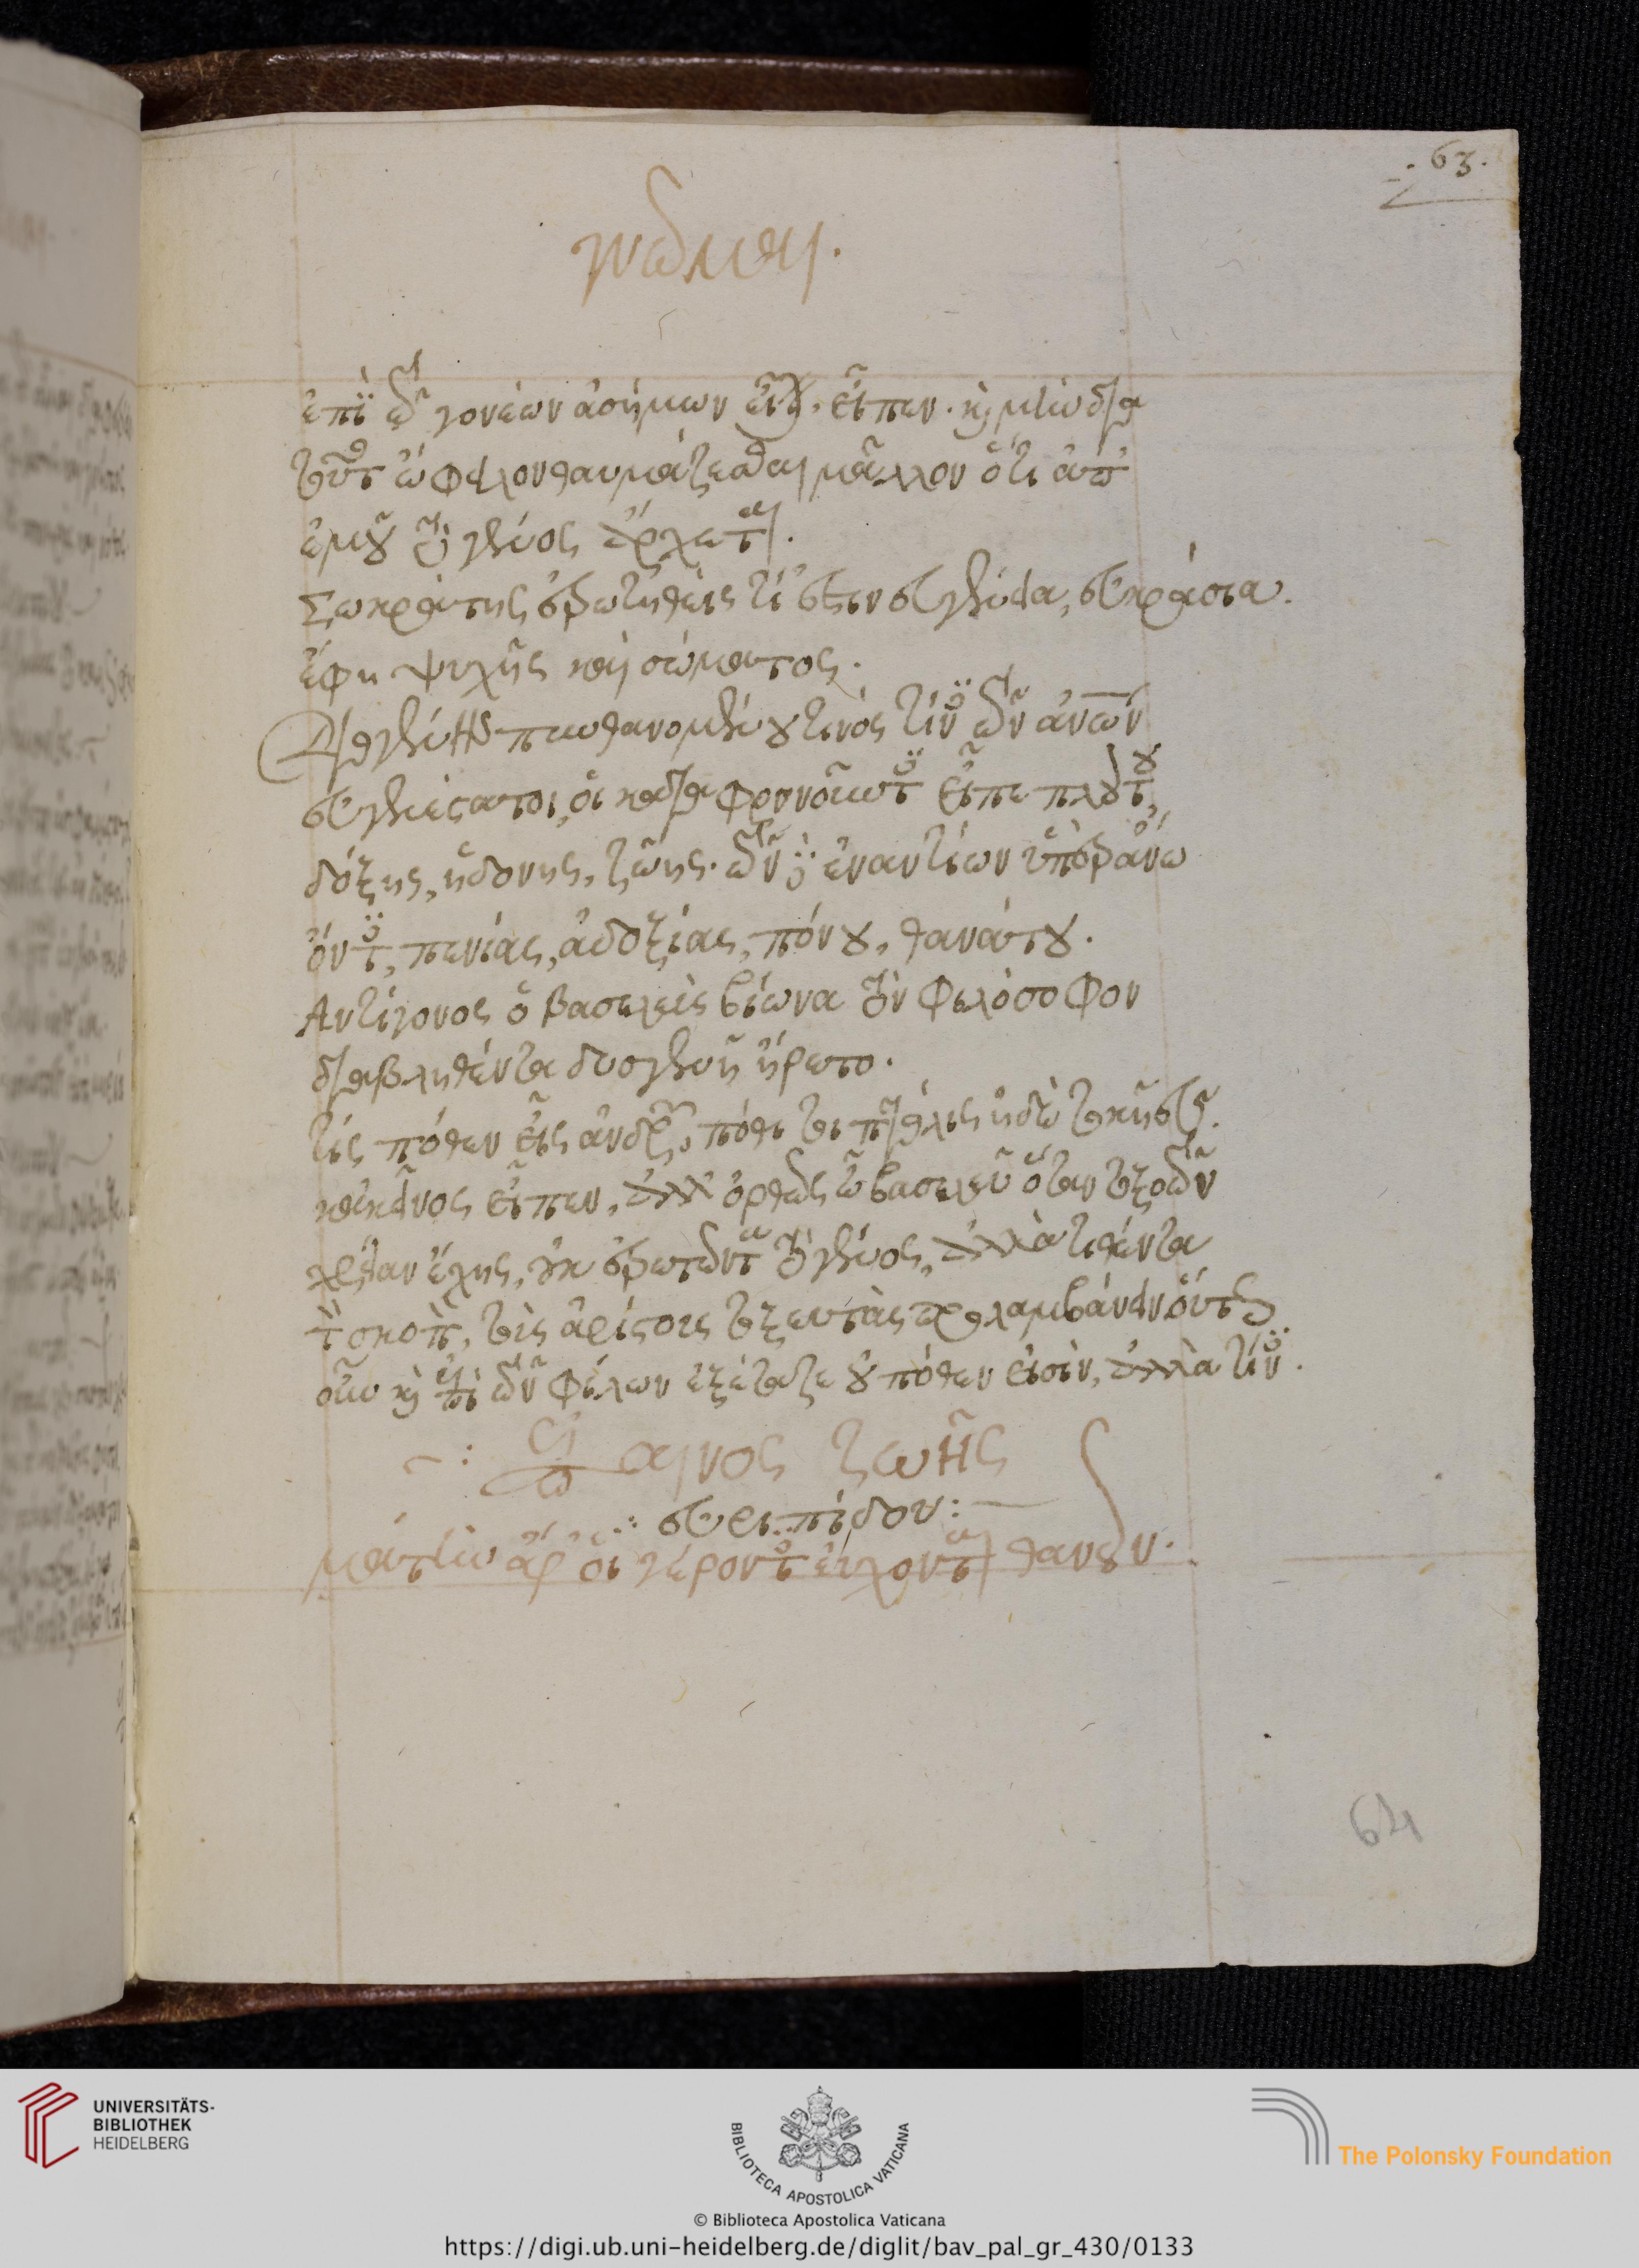 .63.
γνῶμαι.
ἐπὶ τῶν γονέων ἀσήμων εἶναι. εἶπεν. καὶ μὴν διὰ
τοῦτο ὤφειλον θαυμάζεσθαι μᾶλλον ὅτι ἀπ'
ἐμοῦ τὸ γένος ἄρχεται.
Σωκράτης ἐρωτηθεὶς τί ἐστιν εὐγένεια, εὐκρασία.
ἔφη ψυχῆς καὶ σώματος.
Διογένης πυνθανομένου τινός τίνες τῶν ἀνων
εὐγενέστατοι, οἱ καταφρονοῦντες εἶπε πλούτου,
δόξης, ἡδονῆς, ζωῆς. τῶν δὲ ἐναντίων ὑπεράνω
ὄντες, πενίας, ἀδοξίας, πόνου, θανάτου.
Ἀντίγονος ὁ βασιλεὺς βίωνα τὸν φιλόσοφον
διαβληθέντα δυσγενῆ ἤρετο.
τίς πόθεν εἶς ἀνδρῶν, πόθι τοι πόλις ἠδὲ τοκῆες.
κἀκεῖνος εἶπεν, ἀλλ' ὀρθῶς ὦ βασιλεῦ ὅταν τοξοτῶν
χρείαν ἔχης, οὐκ ἐρωτῶντα τὸ γένος, ἀλλὰ τιθέντα
τὸν σκοπὸν, τοὺς ἀρίστους τοξευτὰς προλαμβάνειν, οὕτως
οὖν καὶ ἐπὶ τῶν φίλων ἐξέταζε οὐ πόθεν εἰσὶν, ἀλλὰ τίνες.
ἔπαινος ζωῆς
εὐριπίδου:
μάτην ἄρ' οἱ γέροντες εὔχονται θανεῖν.
64
UNIVERSITÄTS-
BIBLIOTHEK
HEIDELBERG
BIBLIOTECA APOSTOLICA VATICANA
The Polonsky Foundation
© Biblioteca Apostolica Vaticana
https://digi.ub.uni-heidelberg.de/diglit/bav_pal_gr_430/0133